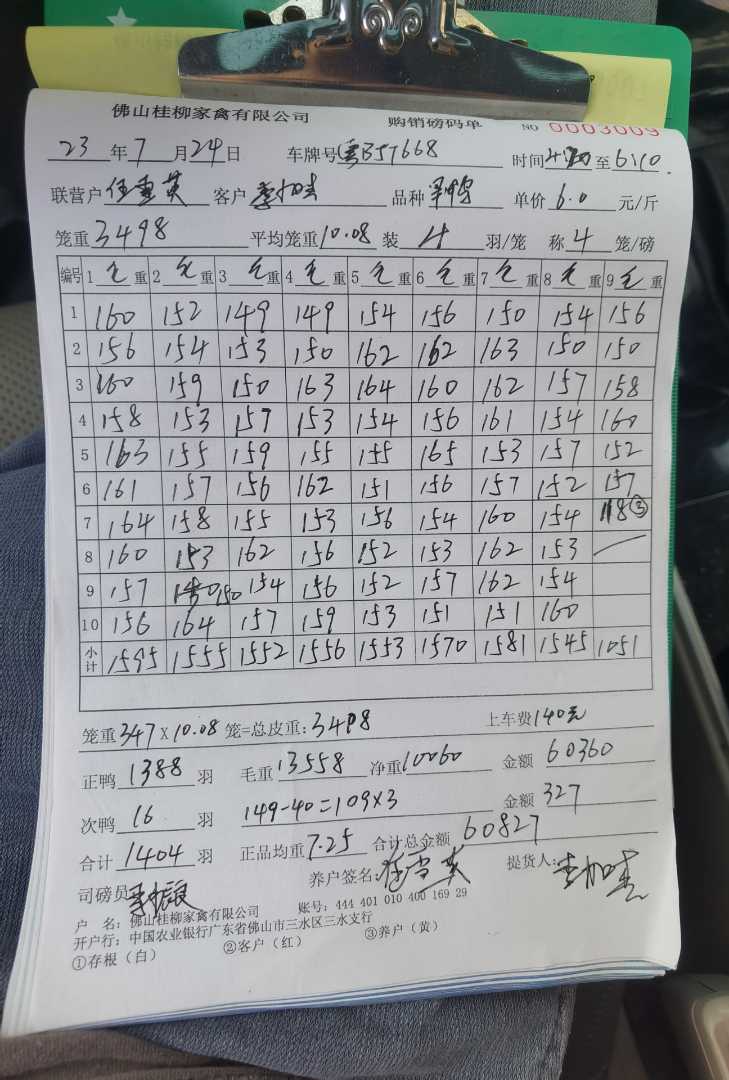 佛山桂柳家禽有限公司 购销磅码单 NO 0003009
23 年 7 月 24 日 车牌号 粤B57668 时间 至 6:10
联营户 任重英 客户 品种 单价 6.0 元/斤
笼重 3498 平均笼重 10.08 装 4 羽/笼 称 4 笼/磅
编号 1 毛 重 2 毛 重 3 毛 重 4 毛 重 5 毛 重 6 毛 重 7 毛 重 8 毛 重 9 毛 重
1 160 152 149 149 154 156 150 154 156
2 156 154 153 150 162 162 163 150 150
3 160 159 150 163 164 160 162 157 158
4 158 153 157 153 154 156 161 154 160
5 163 155 159 155 155 165 153 157 152
6 161 157 156 162 151 156 157 152 157
7 164 158 155 153 156 154 160 154 118③
8 160 153 162 156 152 153 162 153
9 157 150 154 156 152 157 162 154
10 156 164 157 159 153 151 151 160
小计 1595 1555 1552 1556 1553 1570 1581 1545 1051
笼重 347 X 10.08 笼=总皮重: 3498 上车费 140元
正鸭 1388 羽 毛重 13558 净重 10060 金额 60360
次鸭 16 羽 149-40=109x3 金额 327
合计 1404 羽 正品均重 7.25 合计总金额 60827
司磅员 养户签名: 提货人:
户 名: 佛山桂柳家禽有限公司 账号: 444 401 010 400 169 29
开户行: 中国农业银行广东省佛山市三水区三水支行
①存根(白) ②客户(红) ③养户(黄)